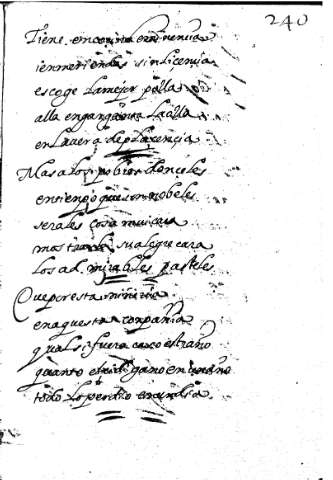 240
Tiene en eminencia
i en meriendas sin licencia
escoge la mejor polla
alla en garganta la olla
en la vera de plasencia
Mas a los pobres donceles
en tiempo que son nobeles
serales cosa mui cara
mostrar su alegre cara
los ad mirables pasteles
Que por esta
en aquesta conpañia
qual si fuera caso estraño
quanto el cid gano en un año
todo lo perdio en un dia